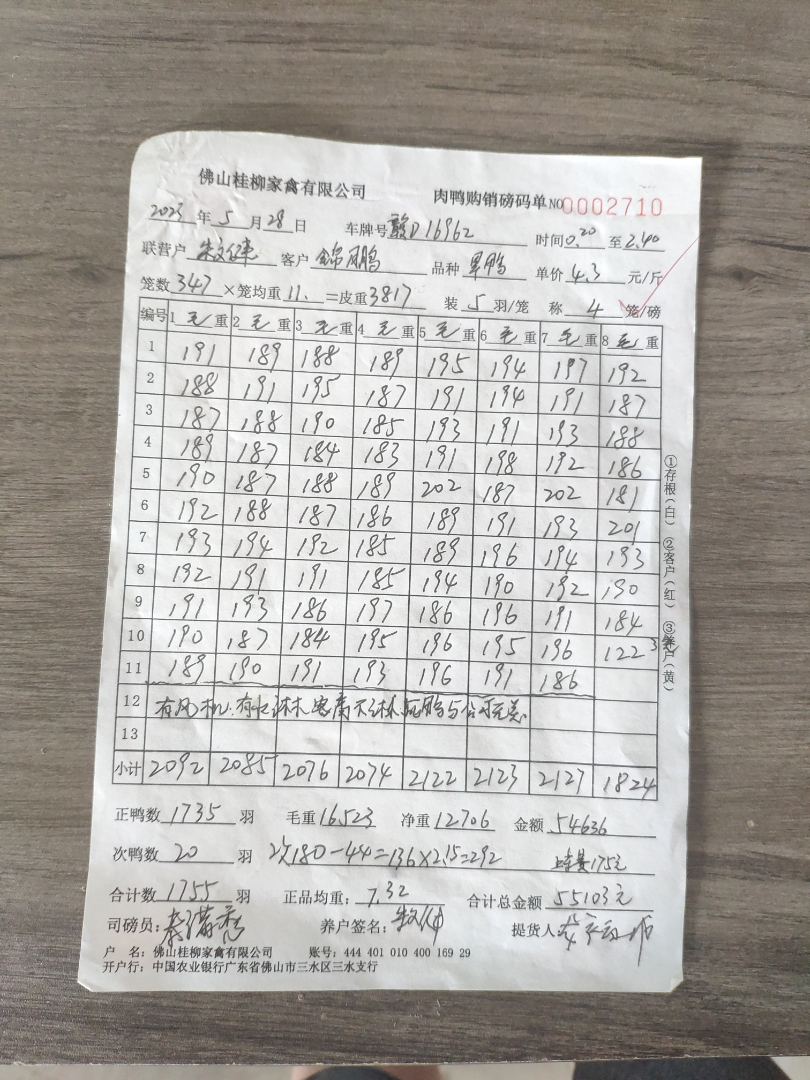 佛山桂柳家禽有限公司 肉鸭购销磅码单 NO 0002710
2023 年 5 月 28 日 车牌号 赣D16962 时间 0.20 至 2.40
联营户 客户 锦鹏 品种 单价 4.3 元/斤
笼数 347 ×笼均重 11. =皮重 3817 装 5 羽/笼 称 4 笼/磅
编号 1 毛 重 2 毛 重 3 毛 重 4 毛 重 5 毛 重 6 毛 重 7 毛 重 8 毛 重
1 191 189 188 189 195 194 197 192
2 188 191 195 187 191 194 191 187
3 187 188 190 185 193 191 193 188
4 189 187 184 183 191 198 192 186
5 190 187 188 189 202 187 202 181
6 192 188 187 186 189 191 193 201
7 193 194 192 185 189 196 194 193
8 192 191 191 185 194 190 192 190
9 191 193 186 197 186 196 191 184
10 190 187 184 195 196 195 196 122
11 189 190 191 193 196 191 186
12 有风机.
13
小计 2092 2085 2076 2074 2122 2123 2127 1824
正鸭数 1735 羽 毛重 16523 净重 12706 金额 54636
次鸭数 20 羽 次180-44=136×2.15=292 175元
合计数 1755 羽 正品均重: 7.32 合计总金额 55103元
司磅员: 养户签名: 提货人
户 名: 佛山桂柳家禽有限公司 账号: 444 401 010 400 169 29
开户行: 中国农业银行广东省佛山市三水区三水支行
①存根(白) ②客户(红) ③养户(黄)